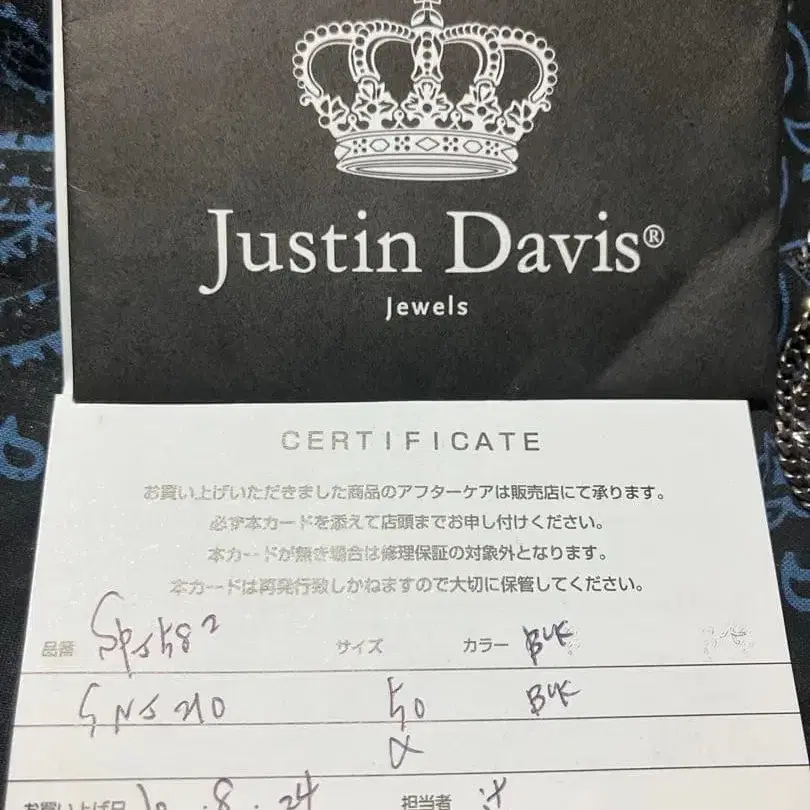 Justin Davis®
Jewels
CERTIFICATE
お買い上げいただきました商品のアフターケアは販売店にて承ります。
必ず本カードを添えて店頭までお申し付けください。
本カードが無き場合は修理保証の対象外となります。
本カードは再発行致しかねますので大切に保管してください。
品番 サイズ カラー BLK
SNJ210 50 BLK
お買い上げ日 .8.24 担当者